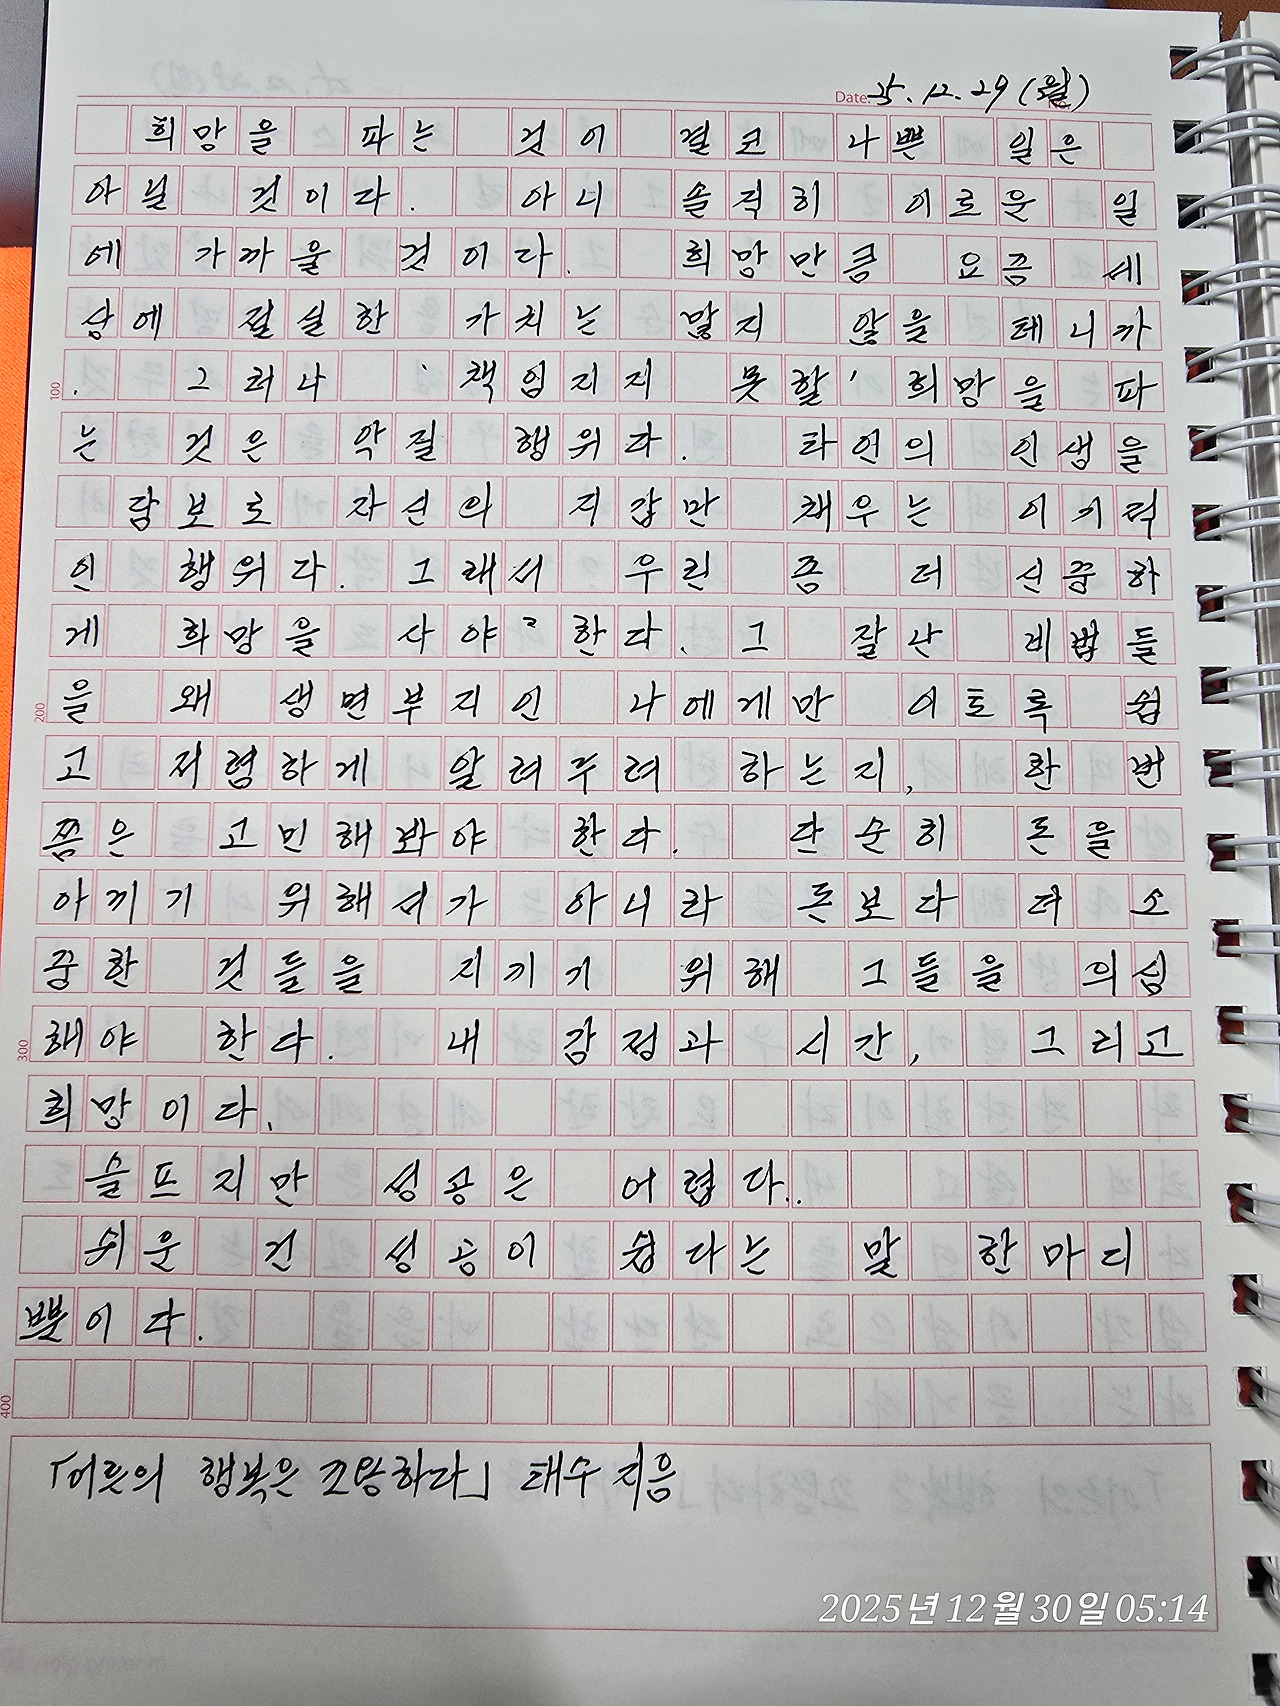 Date. 25.12.29 (월)
희망을 파는 것이 결코 나쁜 일은
아닐 것이다. 아니 솔직히 이로운 일
에 가까울 것이다. 희망만큼 요즘 세
상에 절실한 가치는 많지 않을 테니까
. 그러나 '책임지지 못할' 희망을 파
100
는 것은 악질 행위다. 타인의 인생을
담보로 자신의 지갑만 채우는 이기적
인 행위다. 그래서 우린 좀 더 신중하
게 희망을 사야 한다. 그 잘난 비법들
을 왜 생면부지인 나에게만 이토록 쉽
200
고 저렴하게 알려주려 하는지, 한 번
쯤은 고민해봐야 한다. 단순히 돈을
아끼기 위해서가 아니라 돈보다 더 소
중한 것들을 지키기 위해 그들을 의심
해야 한다. 내 감정과 시간, 그리고
300
희망이다.
슬프지만 성공은 어렵다..
쉬운 건 성공이 쉽다는 말 한마디
뿐이다.
400
「어른의 행복은 조용하다」 태수 지음
2025년 12월 30일 05:14